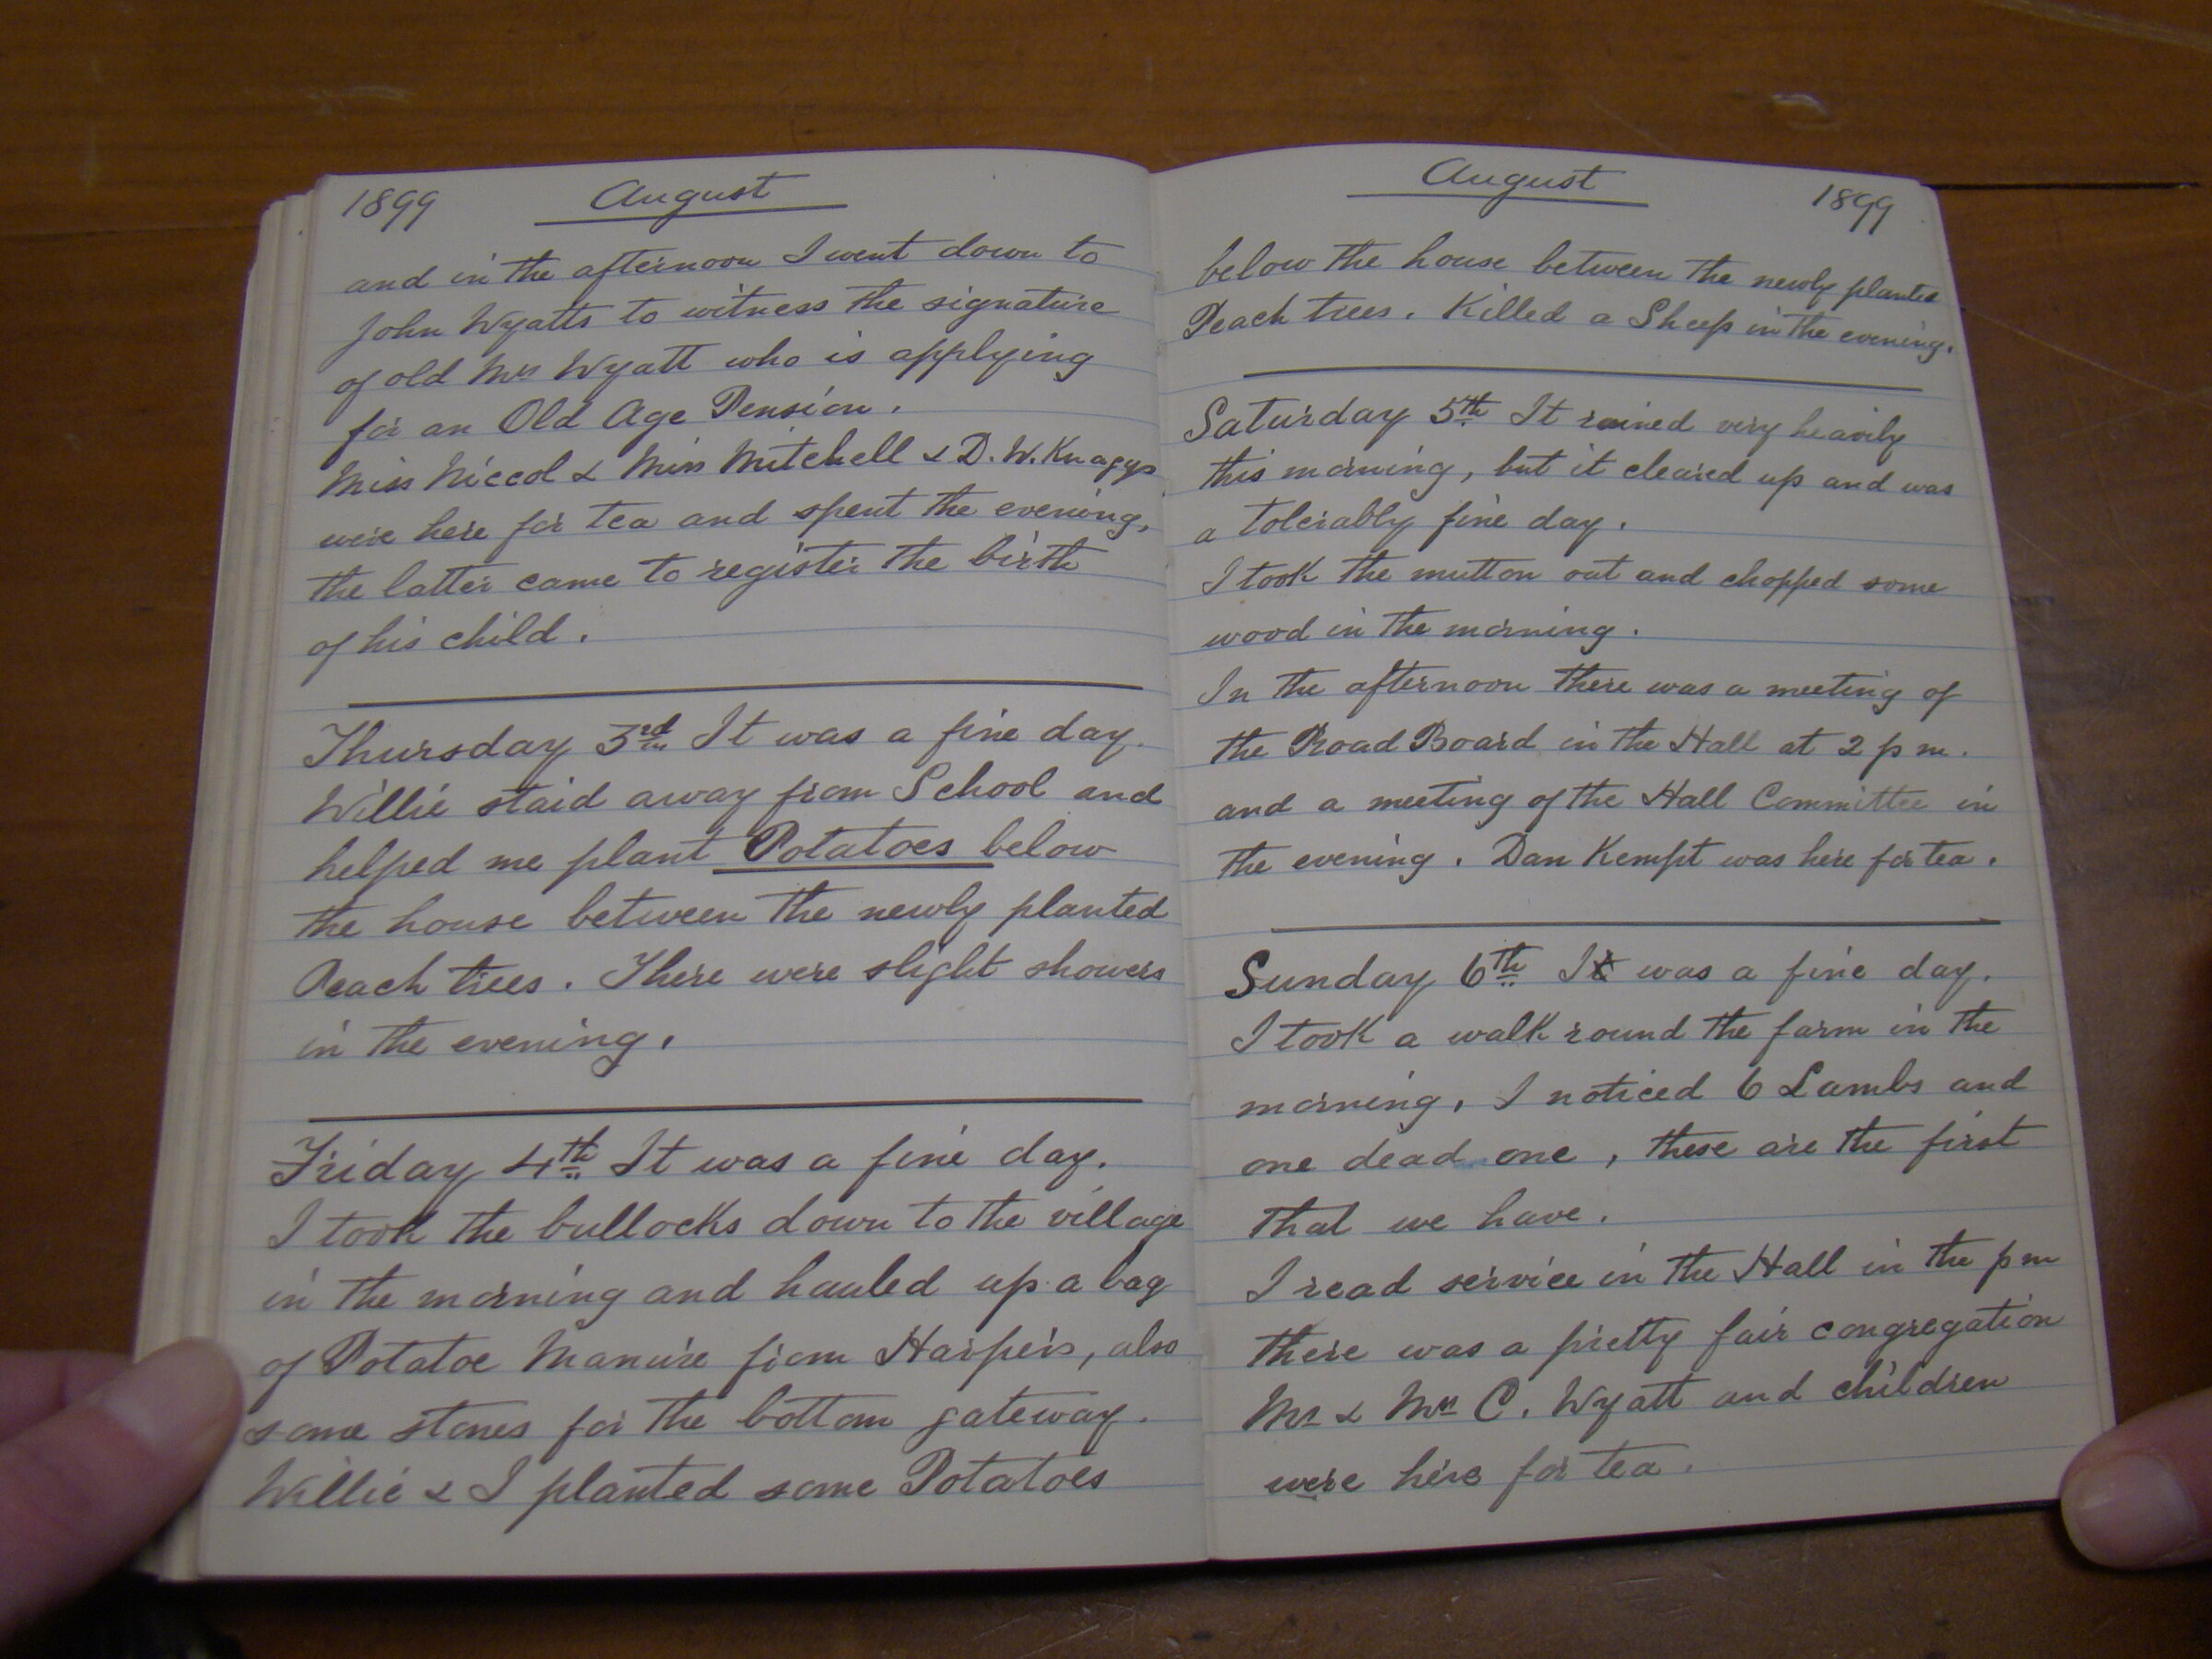 1899 August
and in the afternoon I went down to
John Wyatts to witness the signature
of old Mrs Wyatt who is applying
for an Old Age Pension.
Miss Niccol & Miss Mitchell & D. W. Knaggs
were here for tea and spent the evening,
the latter came to register the birth
of his child.
Thursday 3rd It was a fine day.
Willie staid away from School and
helped me plant Potatoes below
the house between the newly planted
Peach trees. There were slight showers
in the evening.
Friday 4th It was a fine day.
I took the bullocks down to the village
in the morning and hauled up a bag
of Potatoe Manure from Harpers, also
some stones for the bottom gateway.
Willie & I planted some Potatoes
August 1899
below the house between the newly planted
Peach trees. Killed a Sheep in the evening.
Saturday 5th It rained very heavily
this morning, but it cleared up and was
a tolerably fine day.
I took the mutton out and chopped some
wood in the morning.
In the afternoon there was a meeting of
the Road Board in the Hall at 2 p m.
and a meeting of the Hall Committee in
the evening. Dan Kempt was here for tea.
Sunday 6th It was a fine day.
I took a walk round the farm in the
morning, I noticed 6 Lambs and
one dead one, these are the first
that we have.
I read service in the Hall in the p m
there was a pretty fair congregation
Mr & Mrs C. Wyatt and children
were here for tea.